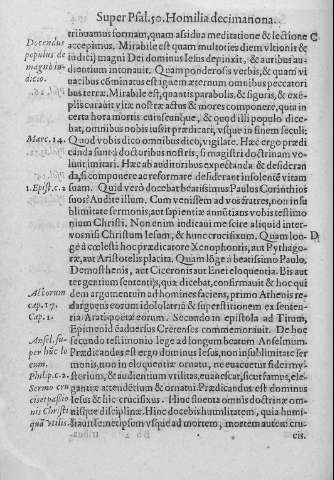 Super Psal.50. Homilia decimanona.
tribuamus formam, quam assidua meditatione & lectione C
Docendus accepimus. Mirabile est quam multoties diem vltionis &
populus de iudicij magni Dei dominus Iesus depinxit, & auribus au-
magno iu- dientium intonauit. Quam ponderosis verbis, & quam vi
dicio. uacibus cōminatus est ignē æternum omnibus peccatori
bus terræ. Mirabile est, quantis parabolis, & figuris, & exē-
plis curauit vitæ nostræ actus & mores componere, quia in
certa hora mortis cuiuscunque, & quod illi populo dice-
bat, omnibus nobis iussit prædicari, vsque in finem seculi;
Marc. 14. Quod vobis dico omnibus dico, vigilate. Hæc ergo prædi
canda sunt à doctoribus nostris, si magistri doctrinam vo
lunt imitari. Hæc ab auditoribus expectanda & desideran
da, si componere ac reformare desiderant insolentē vitam
1. Epist. c. 2 suam. Quid verò docebat beatissimus Paulus Corinthios
suos? Audite illum. Cum venissem ad vos fratres, non in su
blimitate sermonis, aut sapientiæ annūtians vobis testimo
nium Christi. Non enim iudicaui me scire aliquid inter
vos nisi Christum Iesum, & hunc crucifixum. Quam lon- D
gè à cœlesti hoc prædicatore Xenophontis, aut Pythago-
ræ, aut Aristotelis placita. Quam lōgè à beatissimo Paulo,
Demosthenis, aut Ciceronis aut Enei eloquentia. Bis aut
ter gentium sententijs, quæ dicebat, confirmauit & hoc qui
Actorum dem argumentum ad homines faciens, primo Athenis re-
cap. 17. darguens eorum idololatriā & superstitionem ex senten-
Cap. 1. tia Arati poetæ eorum. Secundo in epistola ad Titum,
Epimenidē aduersus Cretenses commemorauit. De hoc
Ansel. su- secundo testimonio lege ad longum beatum Anselmum.
per hūc lo Prædicandus est ergo dominus Iesus, non in sublimitate ser
cum. monis, non in eloquentiæ ornatu, ne euacuetur fidei my-
Philip. c. 2. sterium, & audientium vtilitas euanescat, sicut famus, ele-
Sermo cru gantiæ attendētium & ornatui. Prædicandus est dominus
cis et passio Iesus & hic crucifixus. Hinc fluenta omnis doctrinæ om-
nis Christi nisque disciplinæ. Hinc docebis humilitatem, quia humi-
quā vtilis. liauit semetipsum vsque ad mortem, mortem autem cru-
cis.